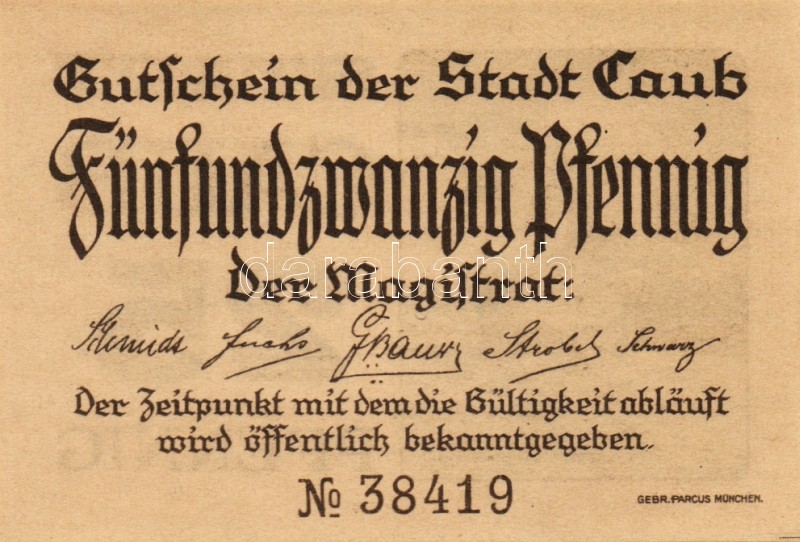 Gutschein der Stadt Caub
Fünfundzwanzig Pfennig
Der Magistrat:
darabanth
Schmidt Fuchs G. Bauer Strobel Schwarz
Der Zeitpunkt mit dem die Gültigkeit abläuft
wird öffentlich bekanntgegeben.
№ 38419
GEBR. PARCUS MÜNCHEN.